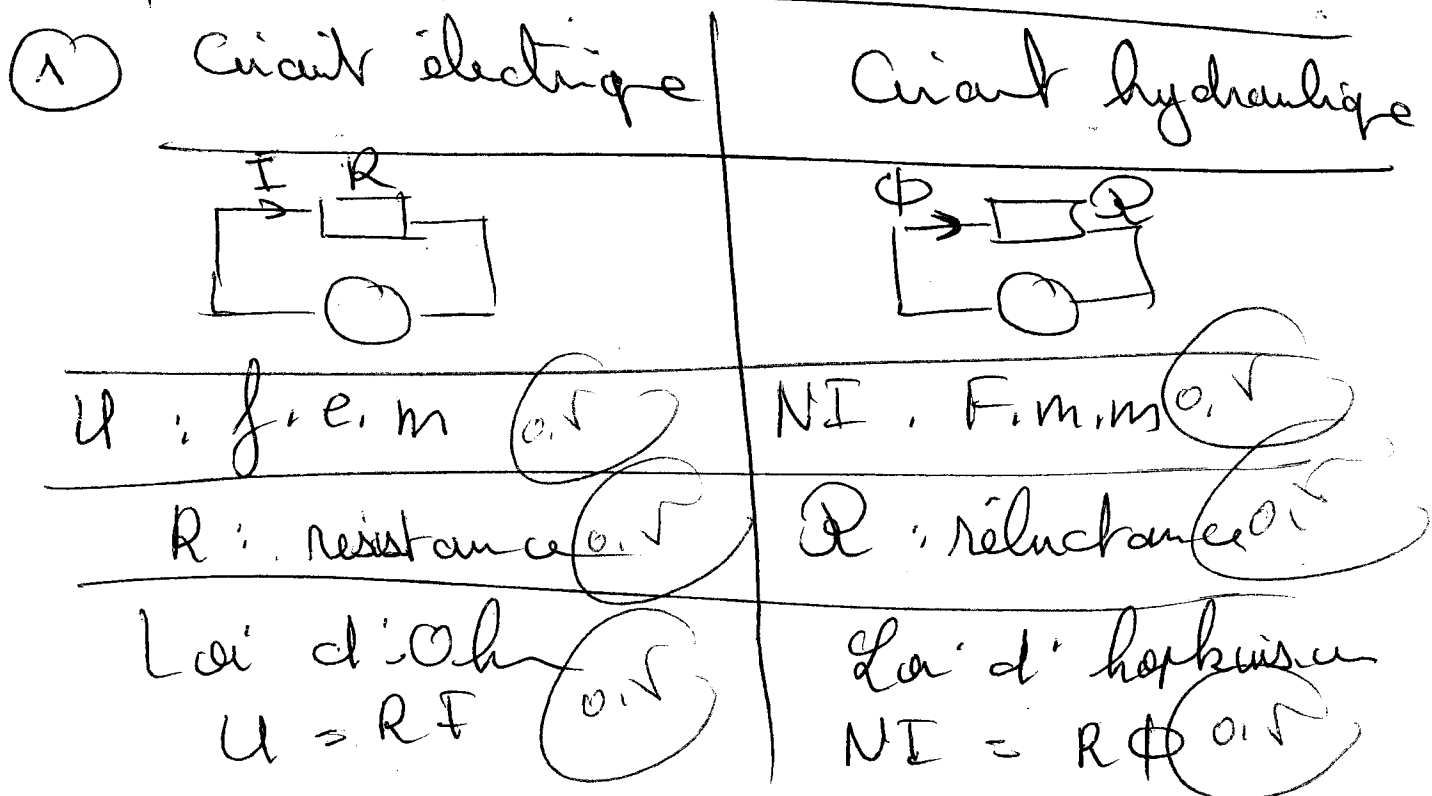 ① Circuit électrique | Circuit hydraulique
I R | Φ R
U : f.e.m 0,5 | NI . F.m.m 0,5
R : resistance 0,5 | R : réluctance 0,5
Loi d'Ohm | Loi d'hopkinson
U = RI 0,5 | NI = RΦ 0,5